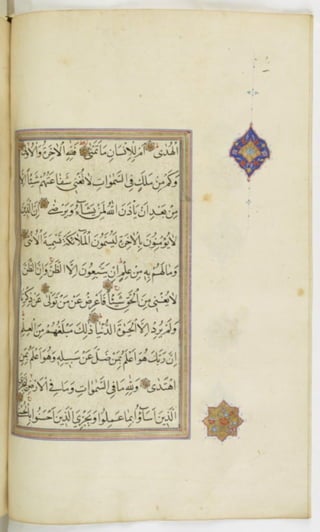 الْهُدَى أَمْ لِلْإِنْسَانِ مَا تَمَنَّى فَلِلَّهِ الْآخِرَةُ وَالْأُولَى
وَكَمْ مِنْ مَلَكٍ فِي السَّمَوَاتِ لَا تُغْنِي شَفَاعَتُهُمْ شَيْئًا إِلَّا
مِنْ بَعْدِ أَنْ يَأْذَنَ اللَّهُ لِمَنْ يَشَاءُ وَيَرْضَى إِنَّ الَّذِينَ
لَا يُؤْمِنُونَ بِالْآخِرَةِ لَيُسَمُّونَ الْمَلَائِكَةَ تَسْمِيَةَ الْأُنْثَى
وَمَا لَهُمْ بِهِ مِنْ عِلْمٍ إِنْ يَتَّبِعُونَ إِلَّا الظَّنَّ وَإِنَّ الظَّنَّ
لَا يُغْنِي مِنَ الْحَقِّ شَيْئًا فَأَعْرِضْ عَنْ مَنْ تَوَلَّى عَنْ ذِكْرِنَا
وَلَمْ يُرِدْ إِلَّا الْحَيَوةَ الدُّنْيَا ذَلِكَ مَبْلَغُهُمْ مِنَ الْعِلْمِ
إِنَّ رَبَّكَ هُوَ أَعْلَمُ بِمَنْ ضَلَّ عَنْ سَبِيلِهِ وَهُوَ أَعْلَمُ بِمَنِ
اهْتَدَى وَلِلَّهِ مَا فِي السَّمَوَاتِ وَمَا فِي الْأَرْضِ لِيَجْزِيَ
الَّذِينَ أَسَاؤُا بِمَا عَمِلُوا وَيَجْزِيَ الَّذِينَ أَحْسَنُوا بِالْحُسْنَى